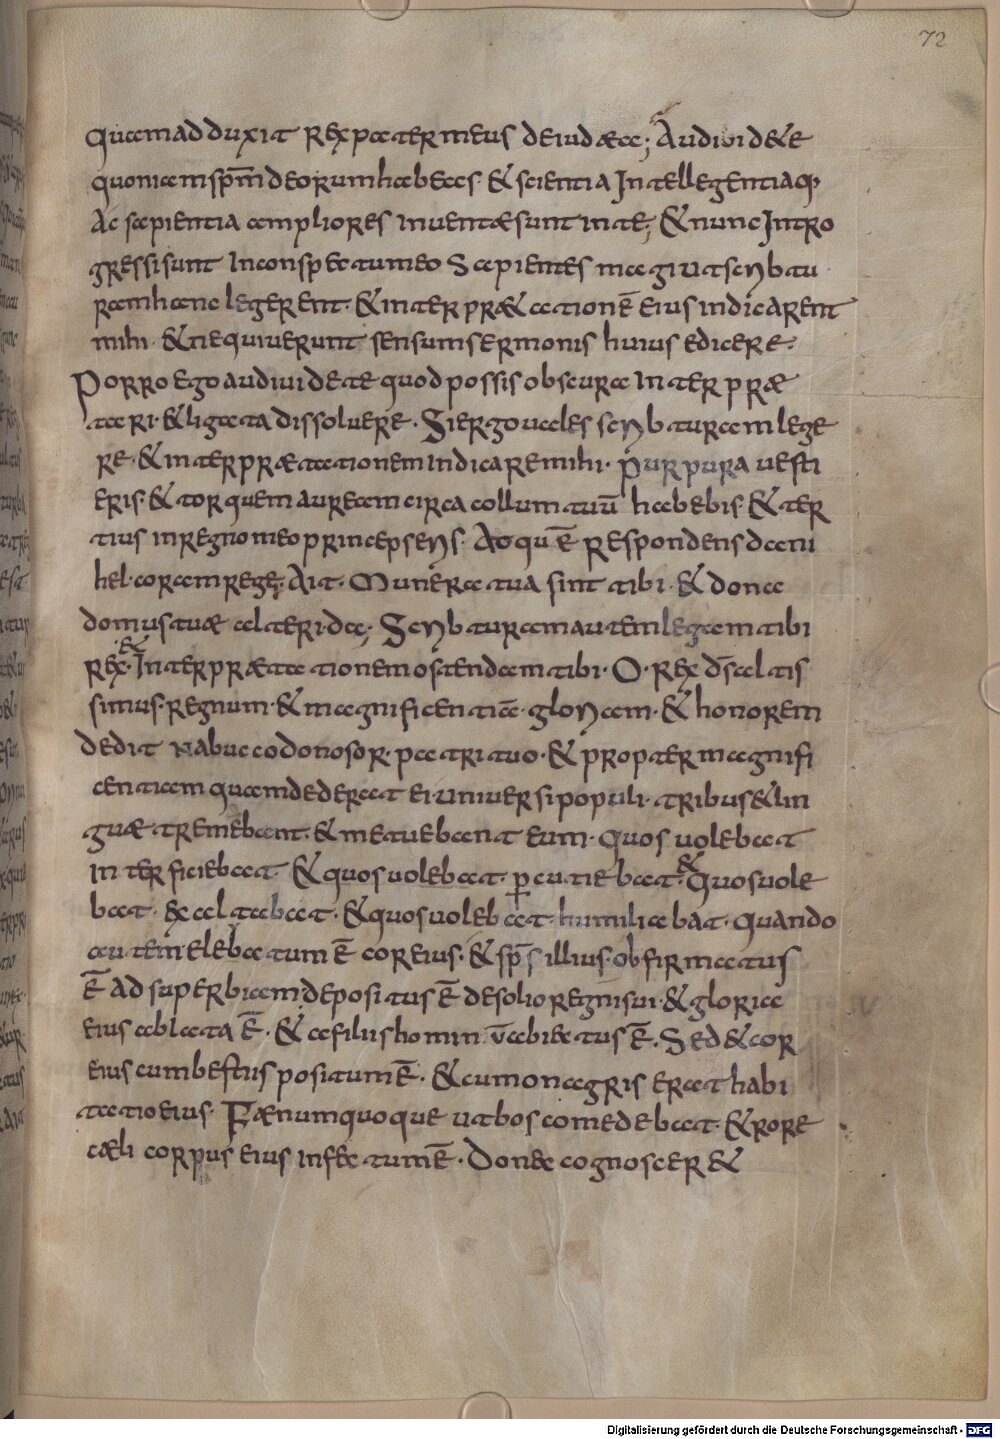 72
quam adduxit rex pater meus de iudaea; Audivi de te
quoniam spm deorum habeas. & scientia Intellegentiaq;
Ac sapientia ampliores inventae sunt in te; & nunc Intro
gressi sunt in conspectu meo Sapientes magi ut scrybtu
ram hanc legerent. & interpraetationē eius indicarent
mihi. & nequiverunt sensum sermonis huius edicere.
Porro ego audivi de te quod possis obscura Interprae
tari. & ligata dissolvere. Si ergo vales scrybturam lege
re. & interpraetationem indicare mihi. purpura vesti
eris. & torquem auream circa collum tuū habebis. & ter
tius in regno meo princeps erys. Ad quē respondens dani
hel. coram rege; Ait. Munera tua sint tibi. & dona
domus tuae alteri. da; Scrybturam autem legam tibi
rex. & Interpraetationem ostendam tibi. O. rex ds altis
simus. regnum. & magnificentiā. gloryam. & honorem
dedit nabucodonosor. patri tuo. & propter magnifi
centiam quam dederat ei. universi populi. tribus & lin
guae. tremebant. & metuebant eum. quos volebat
interficiebat. & quos volebat. pcutiebat. & Quos vole
bat. exaltabat. & quos volebat. humiliabat. quando
autem elebatum ē cor eius. & sps illius. obfirmatus
ē ad superbiam. depositus ē de solio regni sui. & gloria
eius ablata ē. & a filiis homin vabiectus ē. Sed & cor
eius cum bestiis positum ē. & cum onagris erat habi
tatio eius. Faenum quoque ut bos comedebat. & rore
caeli corpus eius infectum ē. Donec cognoscer&
Digitalisierung gefördert durch die Deutsche Forschungsgemeinschaft - DFG